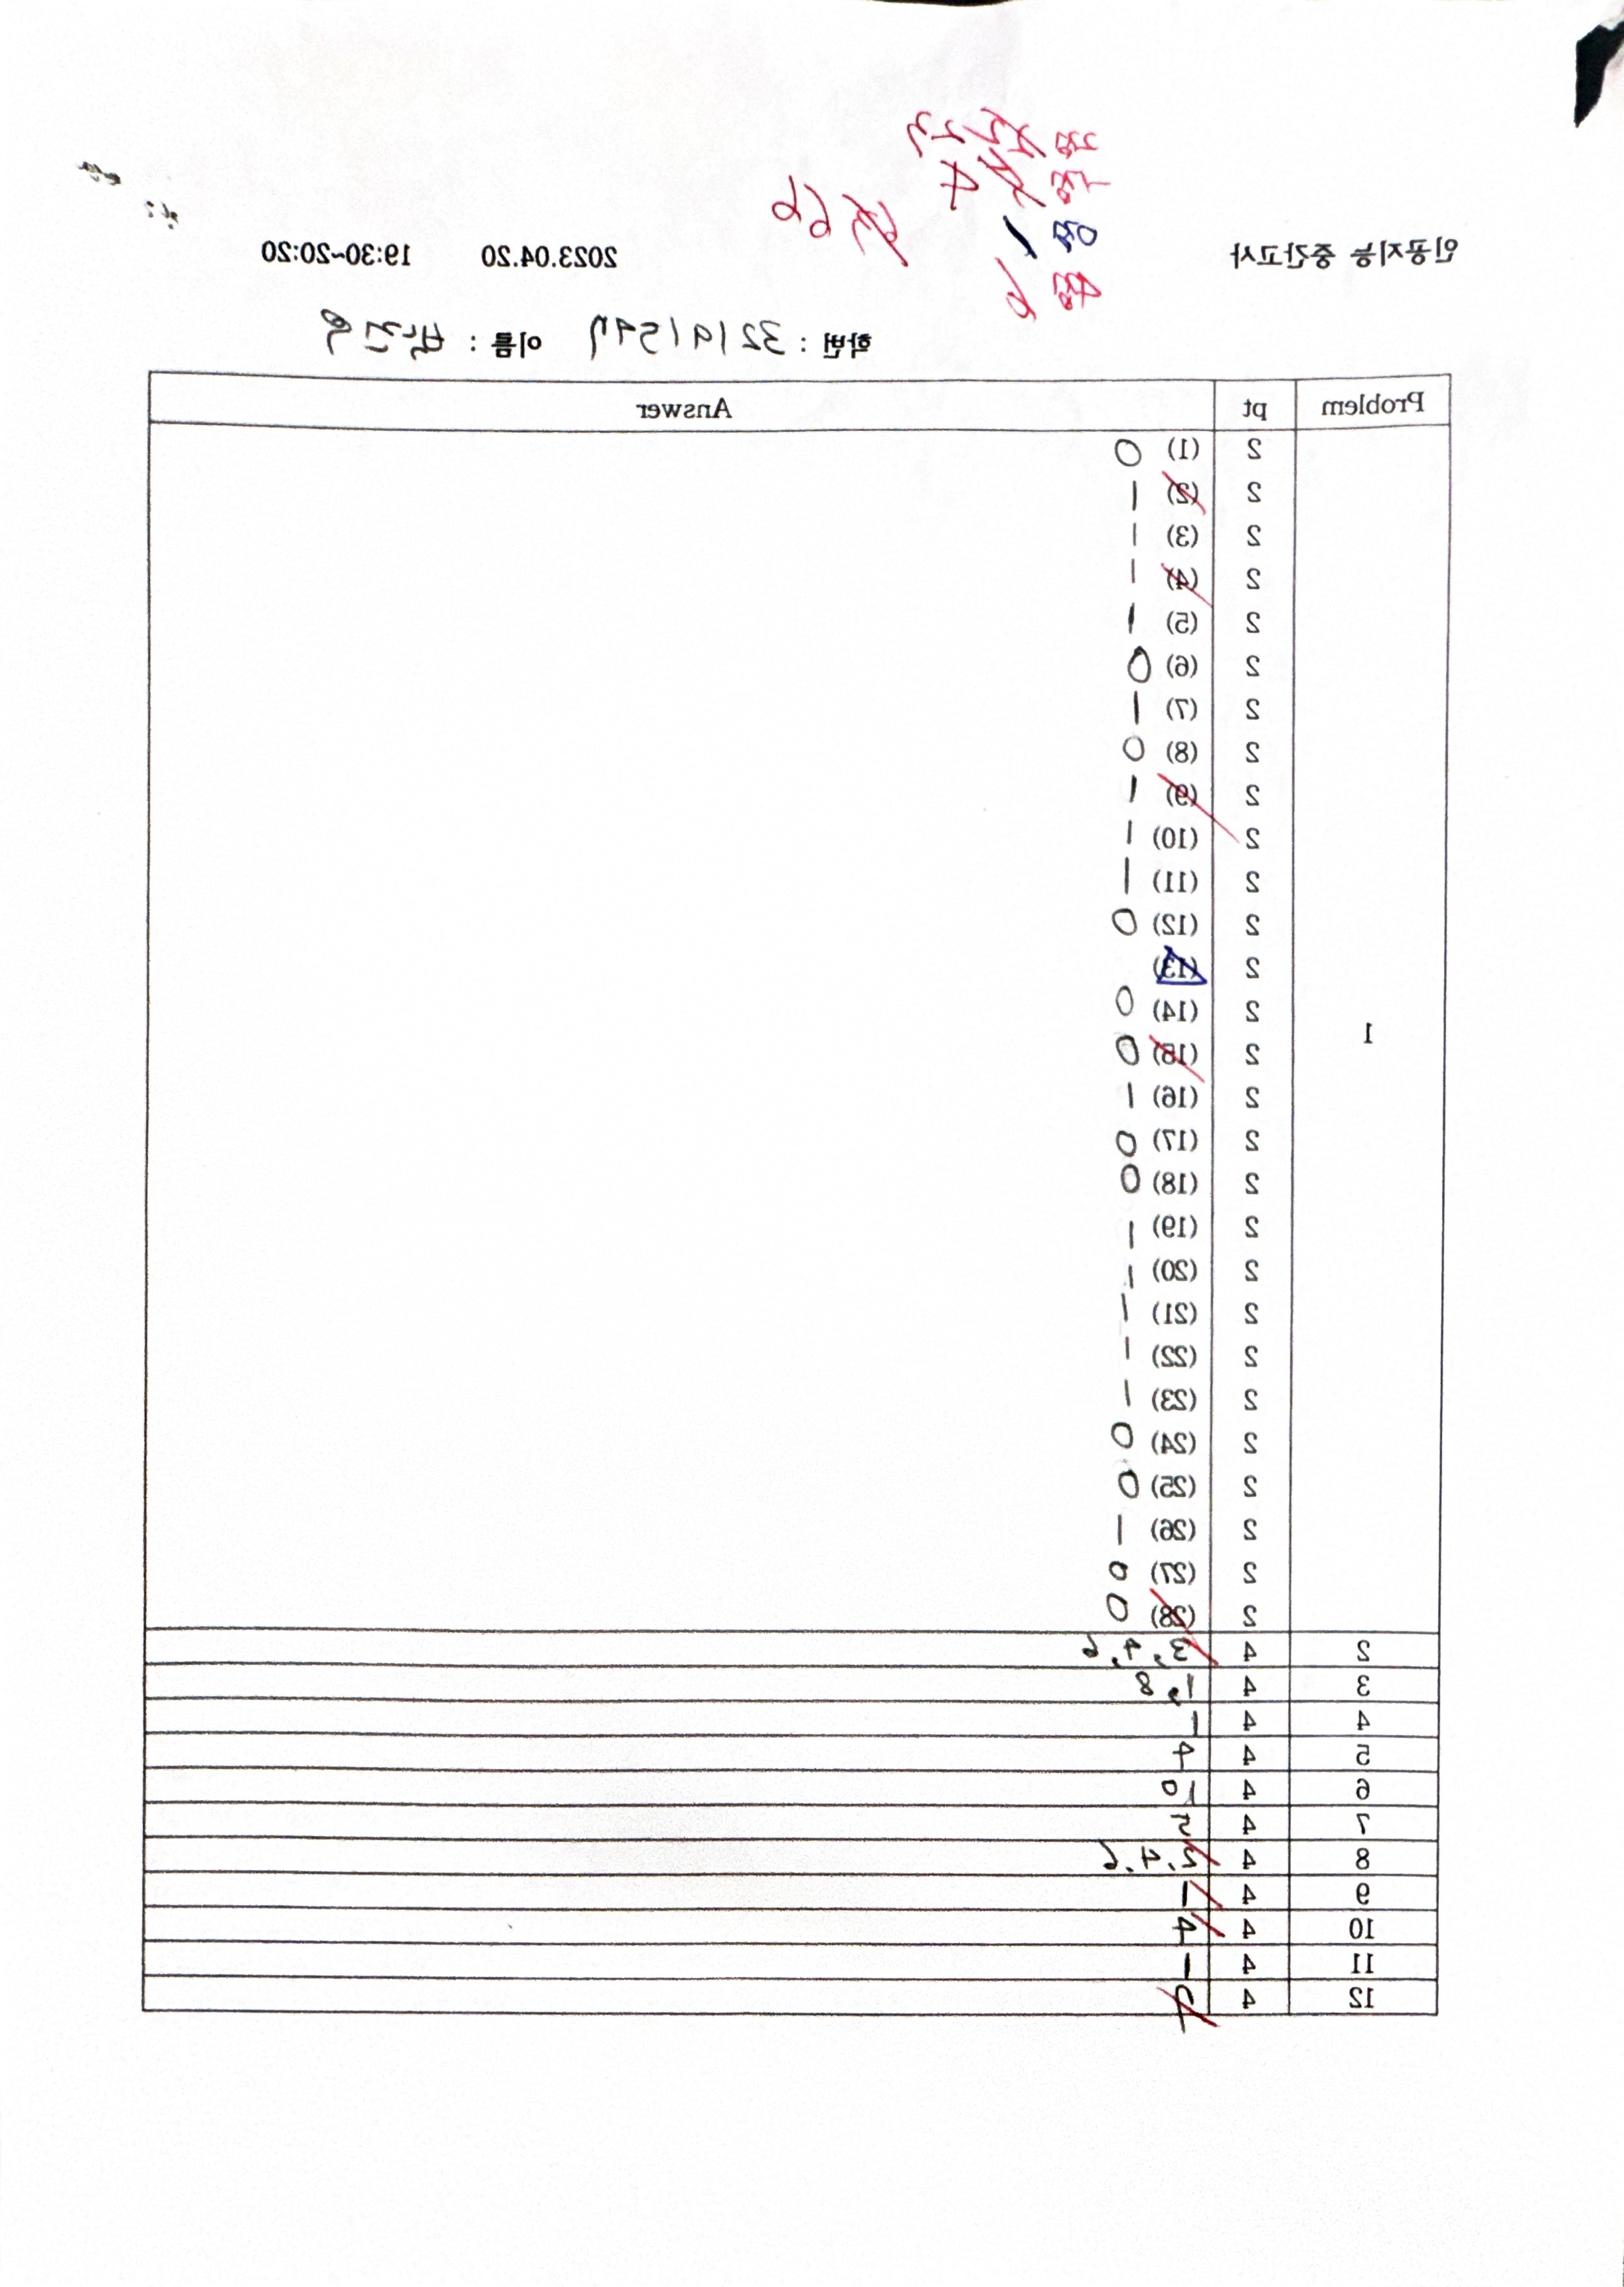 2점 23
1점 4
0점 1
4점 6
66
인공지능 중간고사 2023.04.20 19:30~20:20
학번 : 32191597 이름 : 박건우
Problem pt Answer
1
2 (1) 0
2 (2) 1
2 (3) 1
2 (4) 1
2 (5) 1
2 (6) 0
2 (7) 1
2 (8) 0
2 (9) 1
2 (10) 1
2 (11) 1
2 (12) 0
2 (13)
2 (14) 0
2 (15) 0
2 (16) 1
2 (17) 0
2 (18) 0
2 (19) 1
2 (20) 1
2 (21) 1
2 (22) 1
2 (23) 1
2 (24) 0
2 (25) 0
2 (26) 1
2 (27) 0
2 (28) 0
2 4 3, 4, 6
3 4 1, 8
4 4 1
5 4 4
6 4 10
7 4 5
8 4 4, 6
9 4 1
10 4 4
11 4 1
12 4